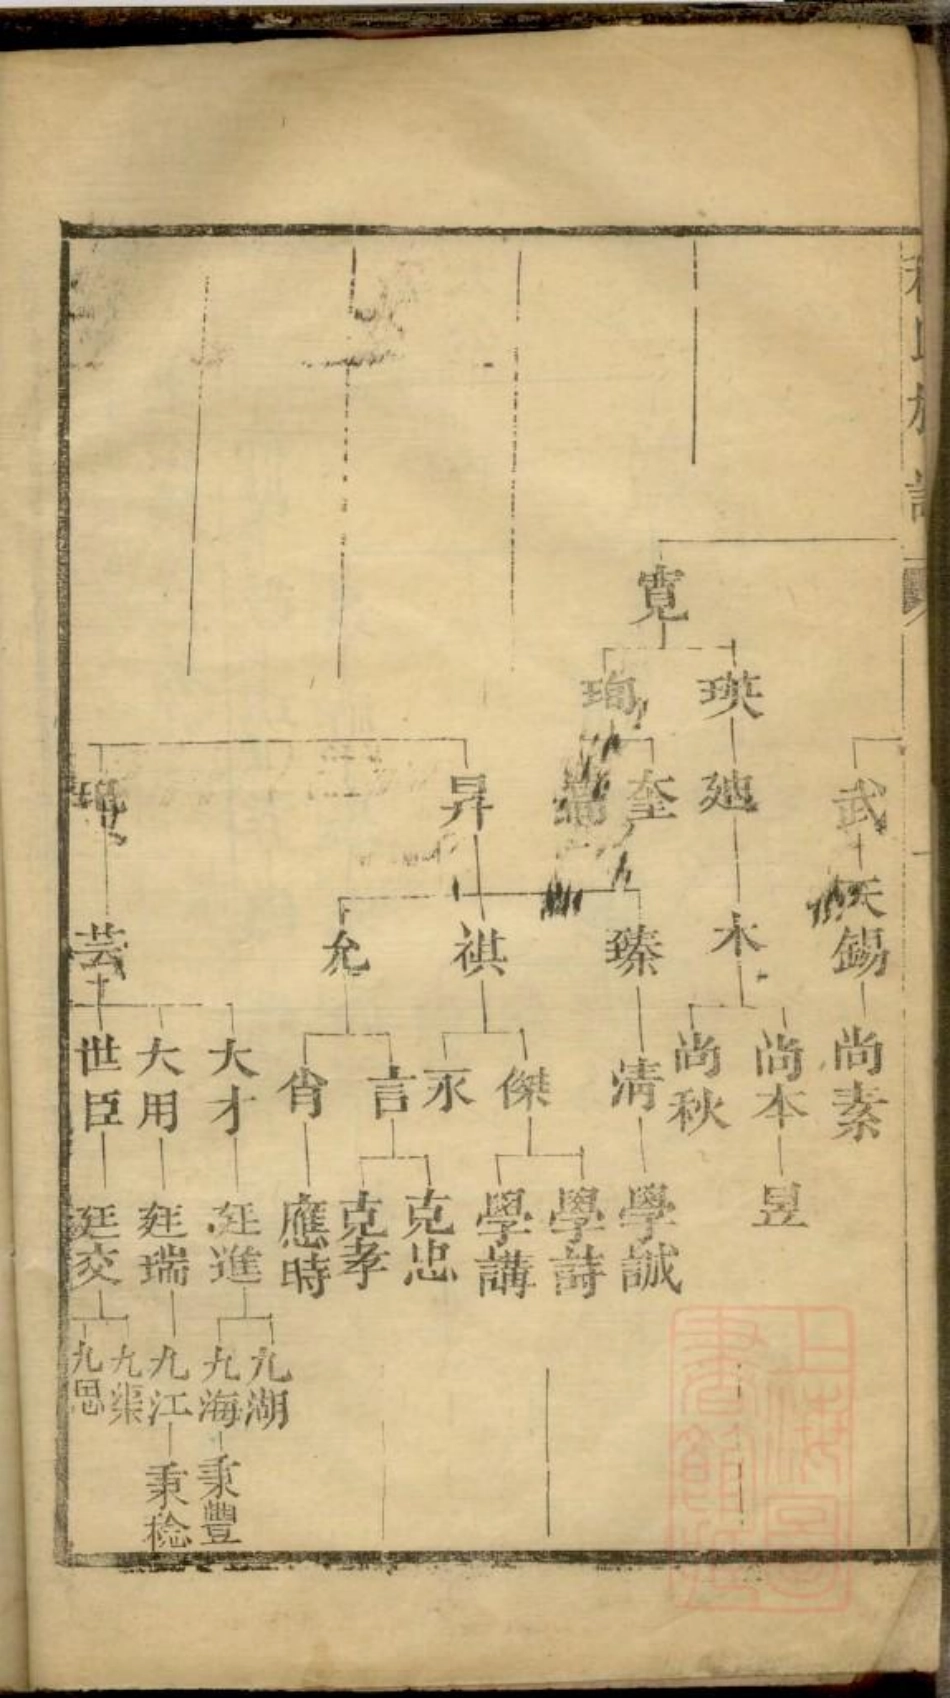 氏族譜
寬
瑛
珣
武
廸
奎
昇
天錫
木
臻
祺
允
芸
尚素
尚本
尚秋
清
傑
永
言
肯
大才
大用
世臣
昱
學誠
學詩
學講
克忠
克孝
應時
廷進
廷瑞
廷交
九湖
九海
九江
九渠
九思
秉豐
秉稔
上海圖書館藏